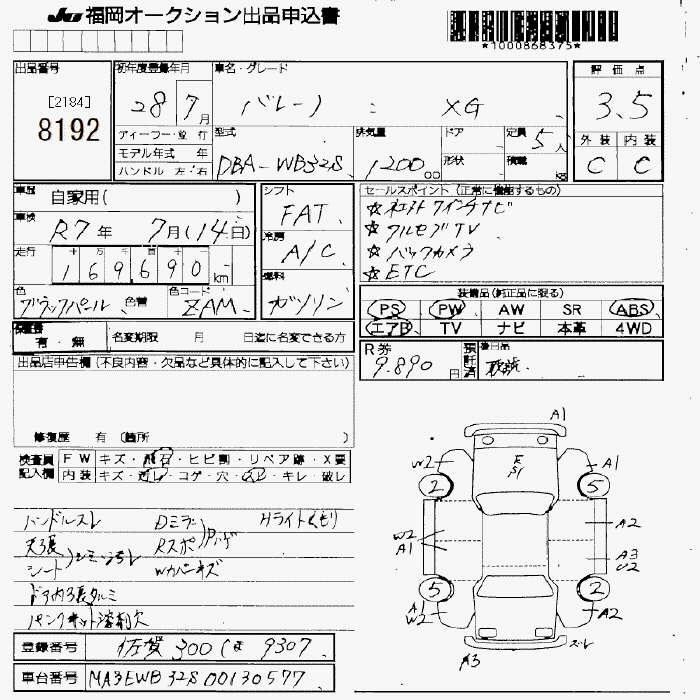 JU 福岡オークション出品申込書
*1000868375*
出品番号
[2184]
8192
初年度登録年月
28 7月
車名・グレード
バレーノ : XG
評価点
3.5
外装 内装
C C
ディーラー・並行
モデル年式 年
ハンドル 左・右
型式
DBA-WB32S
排気量
1200 cc
ドア
形状
定員
5人
積載
kg
車歴
自家用( )
車検
R7年 7月(14日)
走行
十 万 千 百 十 一
169690km
色
ブラックパール
色替
色コード
ZAM
シフト
FAT
冷房
A/C
燃料
ガソリン
セールスポイント (正常に機能するもの)
☆社外ワインチナビ
☆フルセグTV
☆バックカメラ
☆ETC
装備品(純正品に限る)
PS PW AW SR ABS
エアB TV ナビ 本革 4WD
保証書
有・無
名変期限 月 日迄に名変できる方
R券
9,890円
預託済
後日品
出品店申告欄 (不良内容・欠品など具体的に記入して下さい)
修復歴 有 (箇所 )
検査員記入欄
FW キズ・飛石・ヒビ割・リペア跡・X要
内装 キズ・汚レ・コゲ・穴・スレ・キレ・破レ
ハンドルスレ
Dミラー
Rスポ
Hライトくもり
天張
シート
シミヨゴレ
Wカバーキズ
ドア内張タルミ
パンクキット溶剤欠
登録番号 佐賀 300 9307
車台番号 MA3EWB32S00130577
A1
F
S1
W2 A1
2 5
W2
A1
A2
A3
U2
5 2
A1
W2
A2
A3
スレ